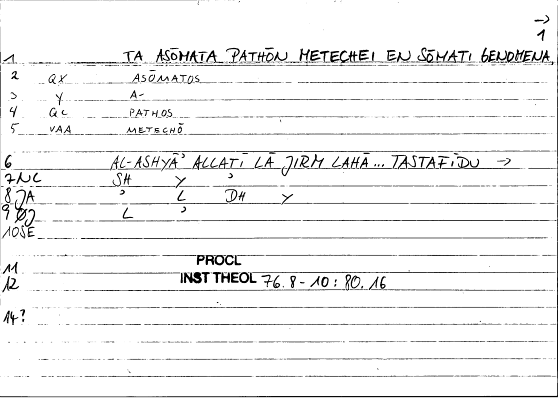 →
1
1 TA ASŌMATA PATHŌN METECHEI EN SŌMATI GENOMENA,
2 QX ASŌMATOS
3 Y A-
4 QC PATHOS
5 VAA METECHŌ
6 AL-ASHYĀʾ ALLATĪ LĀ JIRM LAHĀ... TASTAFĪDU →
7 NC SH Y ʾ
8 JA ʾ L DH Y
9 ØJ L ʾ
10 SE
11 PROCL
12 INST THEOL 76.8-10: 80.16
14?